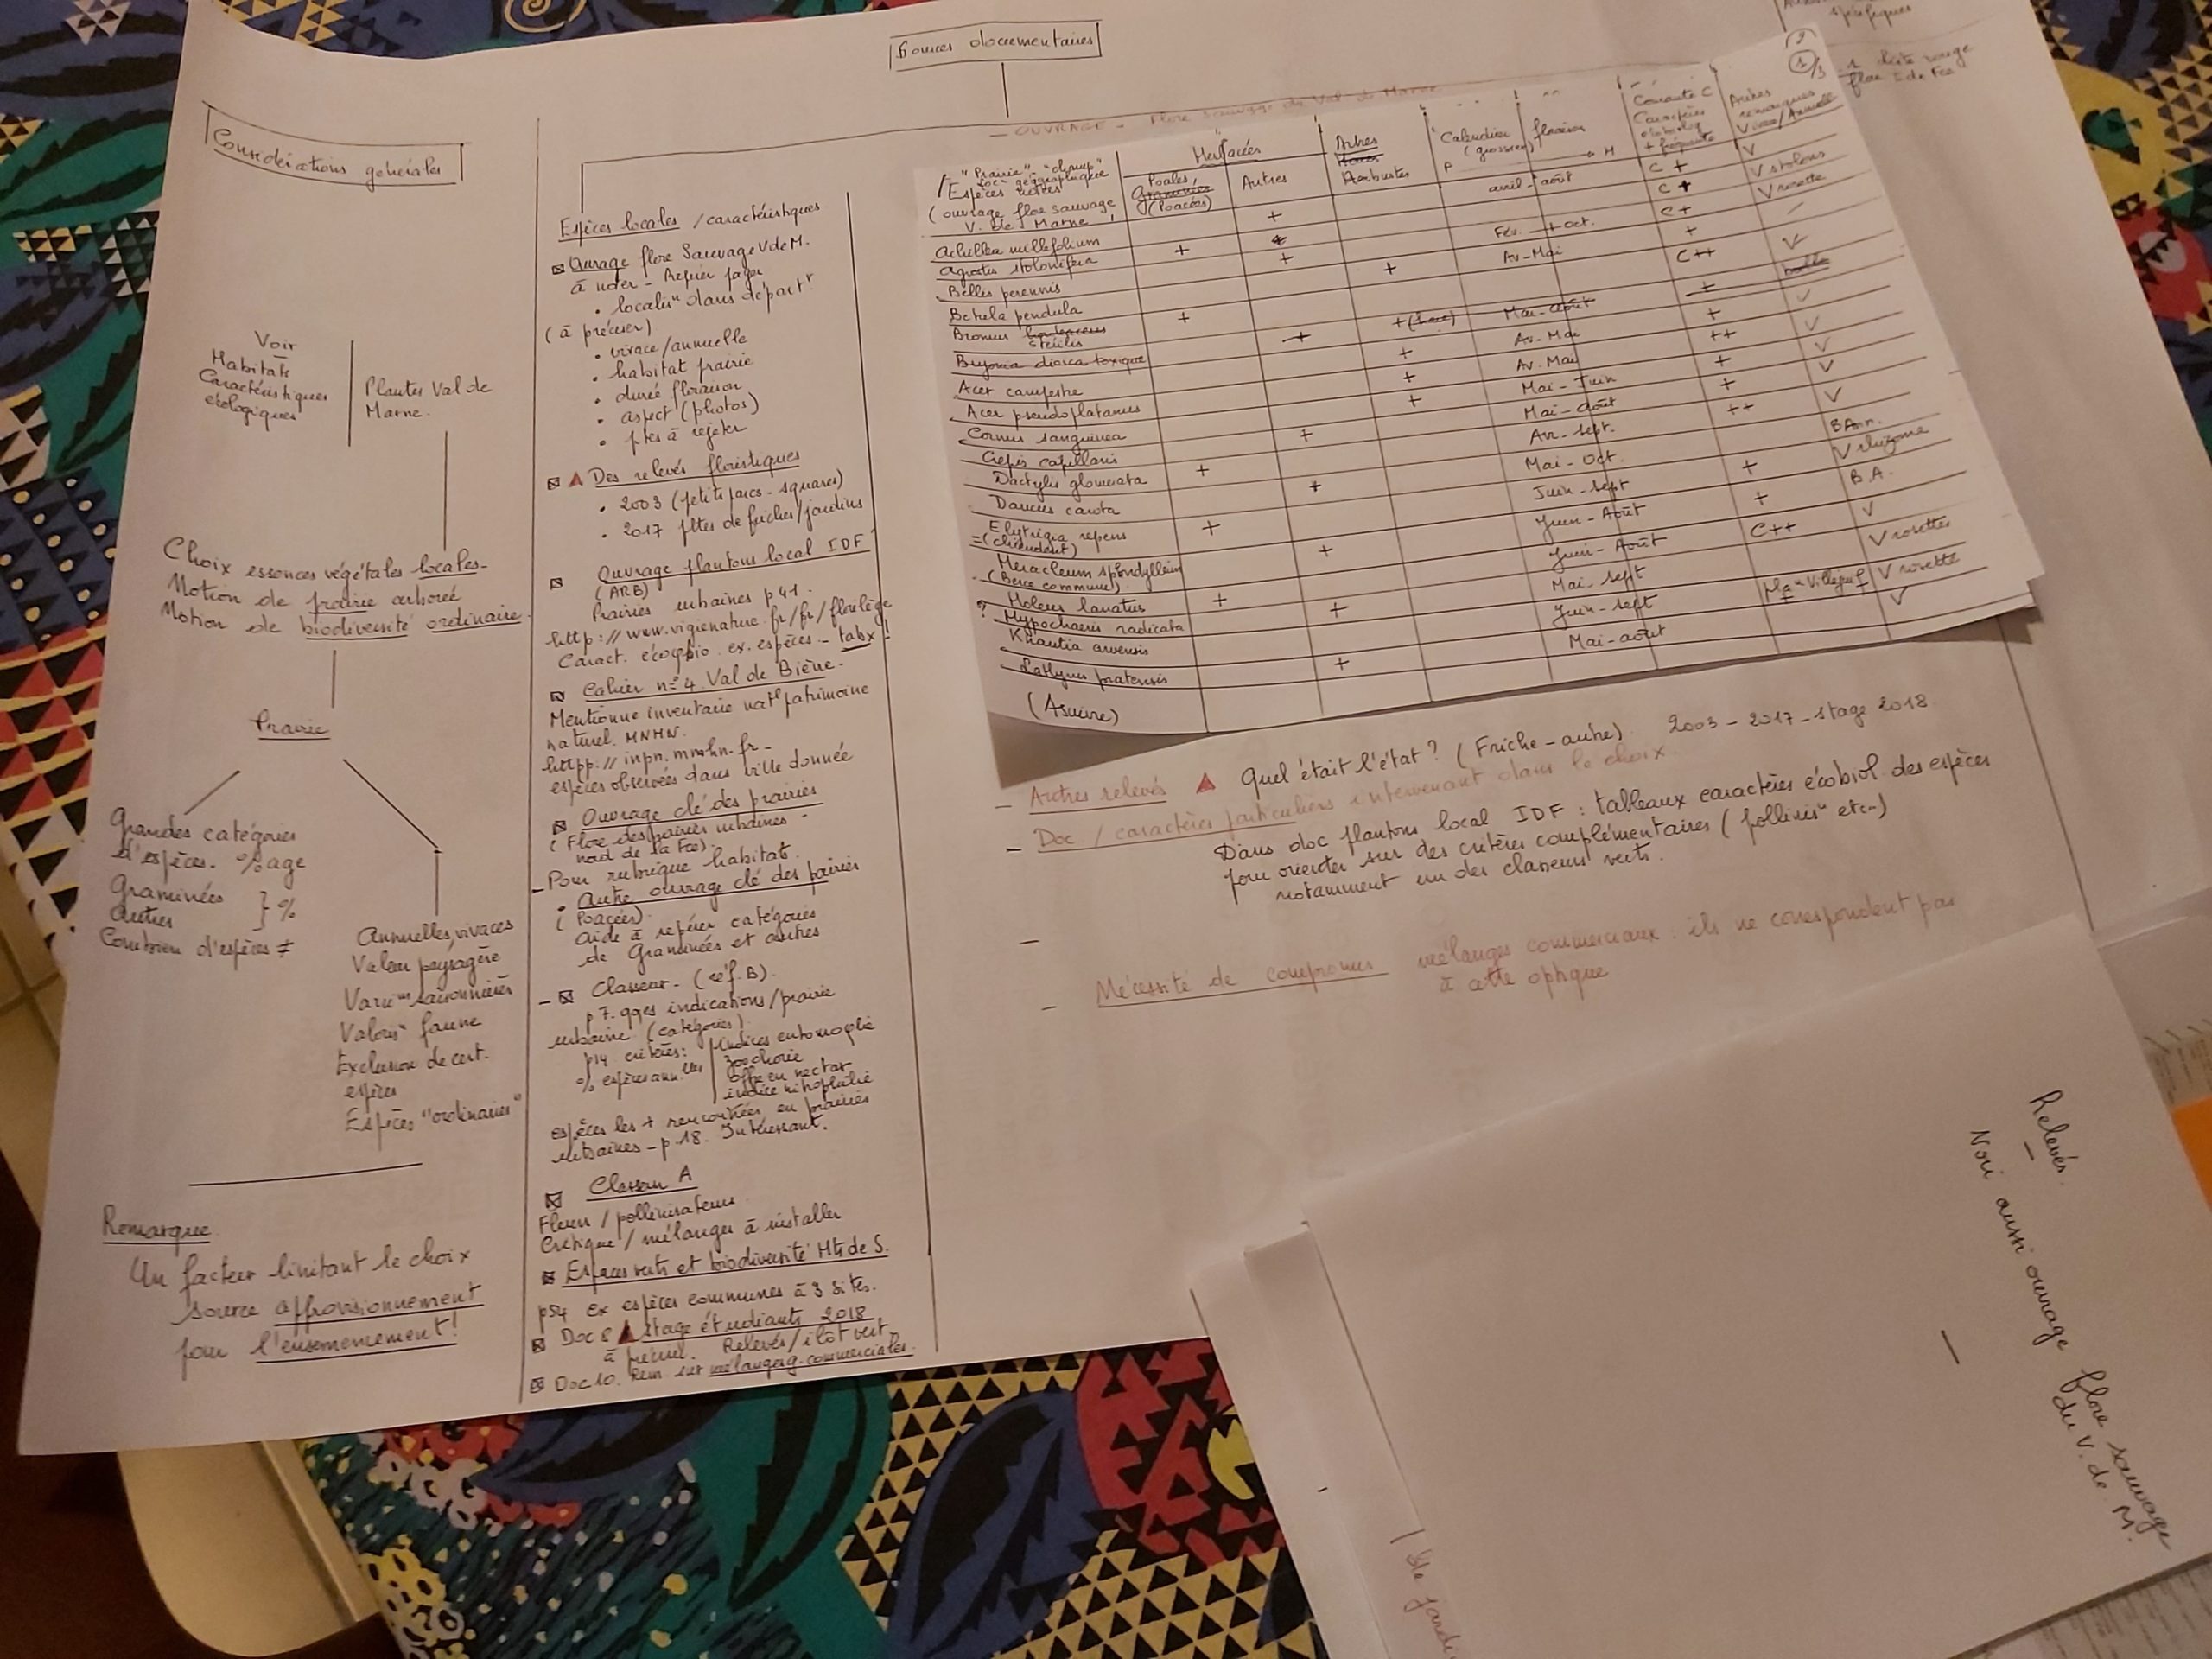 Sources documentaires
Considérations générales
Voir
Habitats
Caractéristiques
écologiques
Plantes Val de
Marne.
Choix essences végétales locales-
Notion de prairie arborée
Notion de biodiversité ordinaire.
Prairie
Grandes catégories
d'espèces. %age
Graminées
Autres
} %
Combien d'espèces ≠
Annuelles, vivaces
Valeur paysagère
Variᵒⁿˢ saisonnières
Valorisⁿ faune
Exclusion de cert.
espèces
Espèces "ordinaires"
Remarque
Un facteur limitant le choix
source approvisionnement
pour l'ensemencement!
Espèces locales / caractéristiques
Ouvrage flore Sauvage V de M.
à noter - Repérer pages
• localisⁿ dans départᵗ
(à préciser)
• vivace/annuelle
• habitat prairie
• durée floraison
• aspect (photos)
• ptes à rejeter
Des relevés floristiques
• 2003 (petits parcs - squares)
• 2017 ptes de friches/jardins
Ouvrage plantons local IDF
(ARB)
Prairies urbaines p41.
http://www.vigienature.fr/fr/florilège
Caract. écogbio. ex. espèces - tabx!
Cahier n°4 Val de Bièvre.
Mentionne inventaire natᵉˡ patrimoine
naturel. MNHN.
httpp://inpn.mnhn.fr-
espèces observées dans ville donnée
Ouvrage clé des prairies
(Flore des prairies urbaines -
nord de la Fce).
- Pour rubrique habitat.
• Autre ouvrage clé des prairies
(Poacées).
aide à repérer catégories
de Graminées et autres
- Classeur - (réf. B).
p7. qques indications/prairie
urbaine (catégories)
p14 critères:
% espèces annᵉˡˡᵉˢ
indices entomophilie
zoochorie
offre en nectar
indice nitrophilie
espèces les + rencontrées en prairies
urbaines - p.18. Intéressant.
Classeur A
Fleurs / pollinisateurs
Critique / mélanges à installer
Espaces verts et biodiversité Hts de S.
p54 ex espèces communes à 3 sites.
Doc 8 stage étudiants 2018
Relevés / ilôt vert.
Doc 10. Rem. sur mélanges commerciales.
- OUVRAGE - Flore sauvage du Val de Marne
"Prairie" "champ"
Espèces notées
(ouvrage flore sauvage
V. de Marne)
Herbacées
Poales
Graminées
(Poacées)
Autres
Arbres
Arbustes
Calendrier floraison
(grossier)
P → H
Courante C
Caractères
+ fréquente
Autres
remarques
Vivace/Annuelle
1/3
Achillea millefolium + avril-août C + V
Agrostis stolonifera + C + V stolons
Bellis perennis + Fév. → Oct. C+ V rosette
Betula pendula + Av-Mai +
Bromus stérilis + C++ V
Bryonia dioica toxique + +(haie) Mai-août +
Acer campestre + Av-Mai + V
Acer pseudoplatanus + Av-Mai ++ V
Cornus sanguinea + Mai-Juin + V
Crepis capillaris + Mai-août + V
Dactylis glomerata + Av-sept. ++ V
Daucus carota + Mai-Oct. B Ann.
Elytrigia repens + Juin-sept + V rhizome
=(chiendent)
Heracleum sphondylium + Juin-Août + B.A.
(Berce commune)
Holcus lanatus + Juin-Août C++ V
? Hypochaeris radicata + Mai-sept V rosettes
Knautia arvensis Juin-sept V rosette
Lathyrus pratensis + Mai-août V
(A suivre)
1 liste rouge
flore I de Fce
spécifiques
- Autres relevés Quel était l'état? (Friche-autre). 2003 - 2017 - stage 2018
- Doc / caractères particuliers intervenant dans le choix.
Dans doc plantons local IDF : tableaux caractères écobiol. des espèces
pour orienter sur des critères complémentaires (pollinisⁿ etc-)
notamment un des classeurs verts.
-
- Nécessité de compromis mélanges commerciaux : ils ne correspondent pas
à cette optique
Relevés.
-
Voir aussi ouvrage flore sauvage
du V. de M.
-